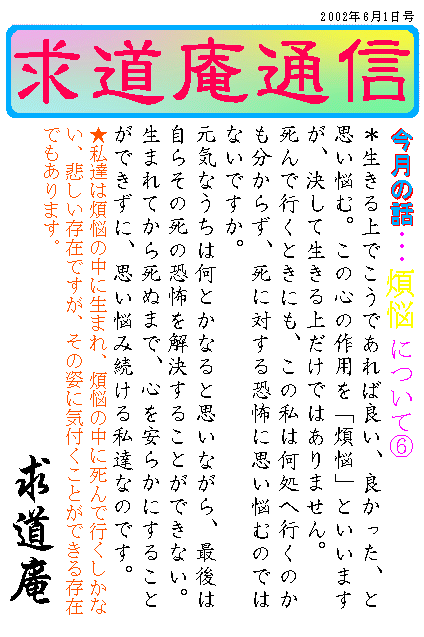 2002年6月1日号
求道庵通信
今月の話…煩悩について⑥
＊生きる上でこうであれば良い、良かった、と
思い悩む。この心の作用を「煩悩」といいます
が、決して生きる上だけではありません。
死んで行くときにも、この私は何処へ行くのか
も分からず、死に対する恐怖に思い悩むのでは
ないですか。
元気なうちは何とかなると思いながら、最後は
自らその死の恐怖を解決することができない。
生まれてから死ぬまで、心を安らかにすること
ができずに、思い悩み続ける私達なのです。
★私達は煩悩の中に生まれ、煩悩の中に死んで行くしかな
い、悲しい存在ですが、その姿に気付くことができる存在
でもあります。
求道庵